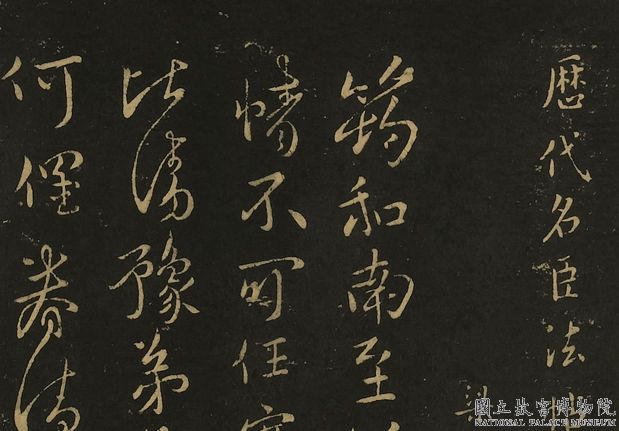 曆代名臣法
筠和南至
情不可任寒
比清豫弟
何
國立故宮博物院
NATIONAL PALACE MUSEUM